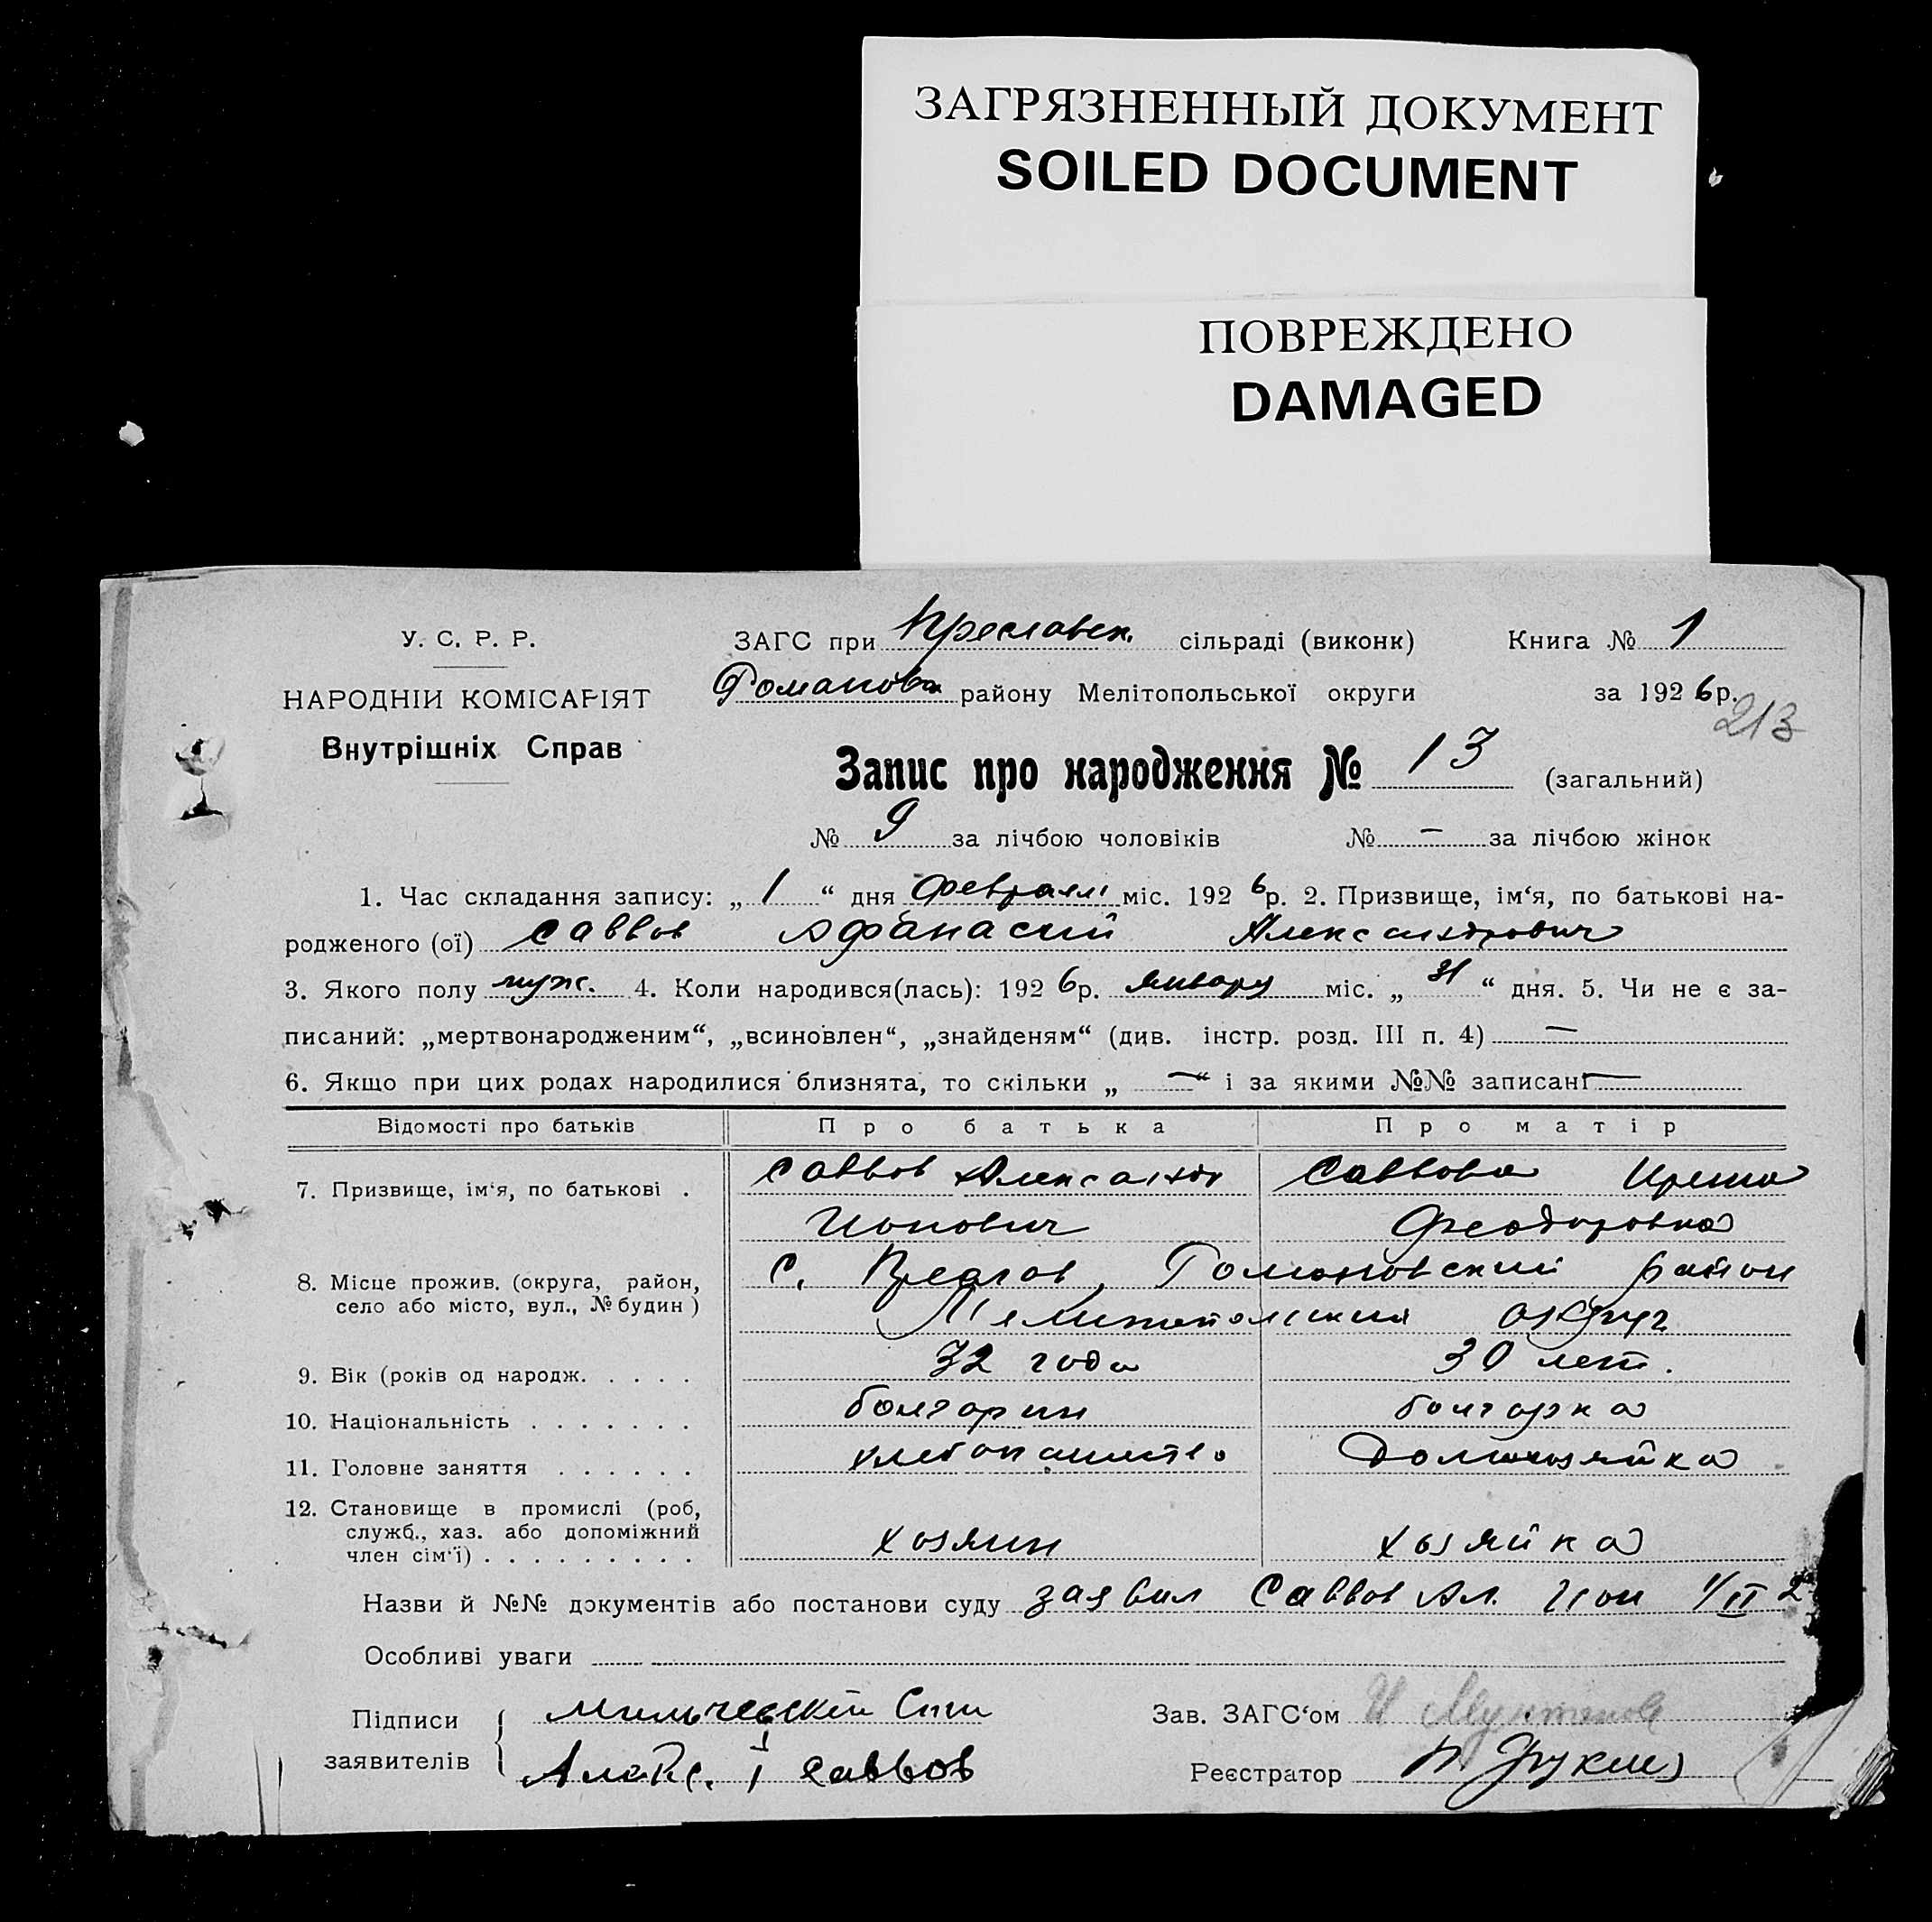 ЗАГРЯЗНЕННЫЙ ДОКУМЕНТ
SOILED DOCUMENT
ПОВРЕЖДЕНО
DAMAGED
У. С. Р. Р.
ЗАГС при Преславск. сільраді (виконк) Книга № 1
НАРОДНІЙ КОМІСАРІЯТ
Романовск району Мелітопольської округи за 1926 р.
213
Внутрішніх Справ
Запис про народження № 13 (загальний)
№ 9 за лічбою чоловіків № — за лічбою жінок
1. Час складання запису: „ 1 “ дня февраля міс. 1926 р. 2. Призвище, ім‘я, по батькові на-
родженого (ої) Саввов Афанасий Александрович
3. Якого полу муж. 4. Коли народився(лась): 1926 р. января міс. „ 31 “ дня. 5. Чи не є за-
писаний: „мертвонародженим“, „всиновлен“, „знайденям“ (див. інстр. розд. III п. 4) —
6. Якщо при цих родах народилися близнята, то скільки „ — “ і за якими №№ записані —
Відомості про батьків Про батька Про матір
7. Призвище, ім‘я, по батькові . Саввов Александр Саввова Ирина
Ионович Феодоровна
8. Місце прожив. (округа, район, с. Преслав, Романовский район
село або місто, вул., № будин ) Мелитопольский округ
9. Вік (років од народж. . . . . 32 года 30 лет.
10. Національність . . . . . . . болгарин болгарка
11. Головне заняття . . . . . . хлебопашество Домохозяйка
12. Становище в промислі (роб,
служб., хаз. або допоміжний
член сім‘ї) . . . . . . . . . хозяин хозяйка
Назви й №№ документів або постанови суду заявил Саввов Ал. Ион 1/II 2
Особливі уваги
Підписи
заявителів
Алекс. І Саввов
Зав. ЗАГС‘ом
Реєстратор